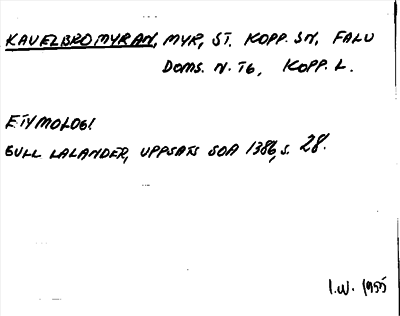 KAVELBROMYRAN, MYR, ST. KOPP. SN, FALU
DOMS. N. TG, KOPP. L.
ETYMOLOGI
GULL LALANDER, UPPSATS SOA 1386, S. 28.
I.W. 1955